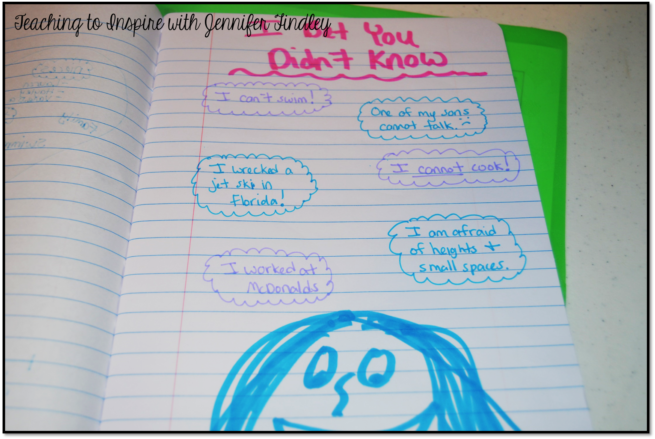 Teaching to Inspire with Jennifer Findley
I Bet You
Didn't Know
I can't swim!
One of my sons
cannot talk.
I wrecked a
jet ski in
Florida!
I cannot cook!
I am afraid
of heights +
small spaces.
I worked at
McDonalds